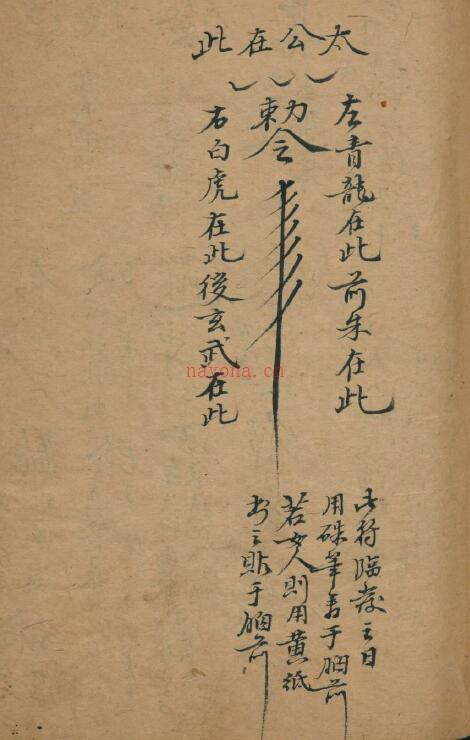 太公在此
勅令
左青龍在此前朱在此
右白虎在此後玄武在此
此符臨發之日
用硃筆書于胸前
若女人則用黃紙
書之貼于胸前
nayona.cn